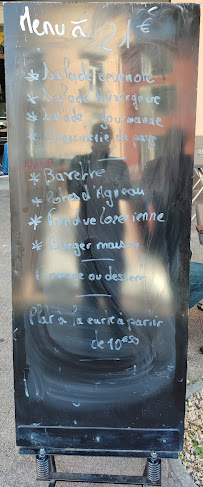 Menu à 21 €
* Salade cévenole
* Salade Auvergnate
* Salade gourmande
* Charcuterie de pays
* Bavette
* Cotes d'Agneau
* Fondue Lozerienne
* Burger maison
Fromage ou dessert
Plat à la carte à partir
de 10€50